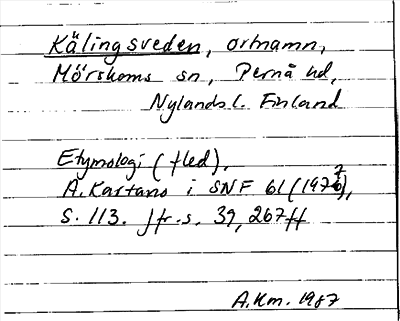 Kälingsveden, ortnamn,
Mörskoms sn, Pernå hd,
Nylands l. Finland
Etymologi (fled).
A. Kartano i SNF 61 (197),
S. 113. Jfr. s. 39, 267ff
A.Km. 1987